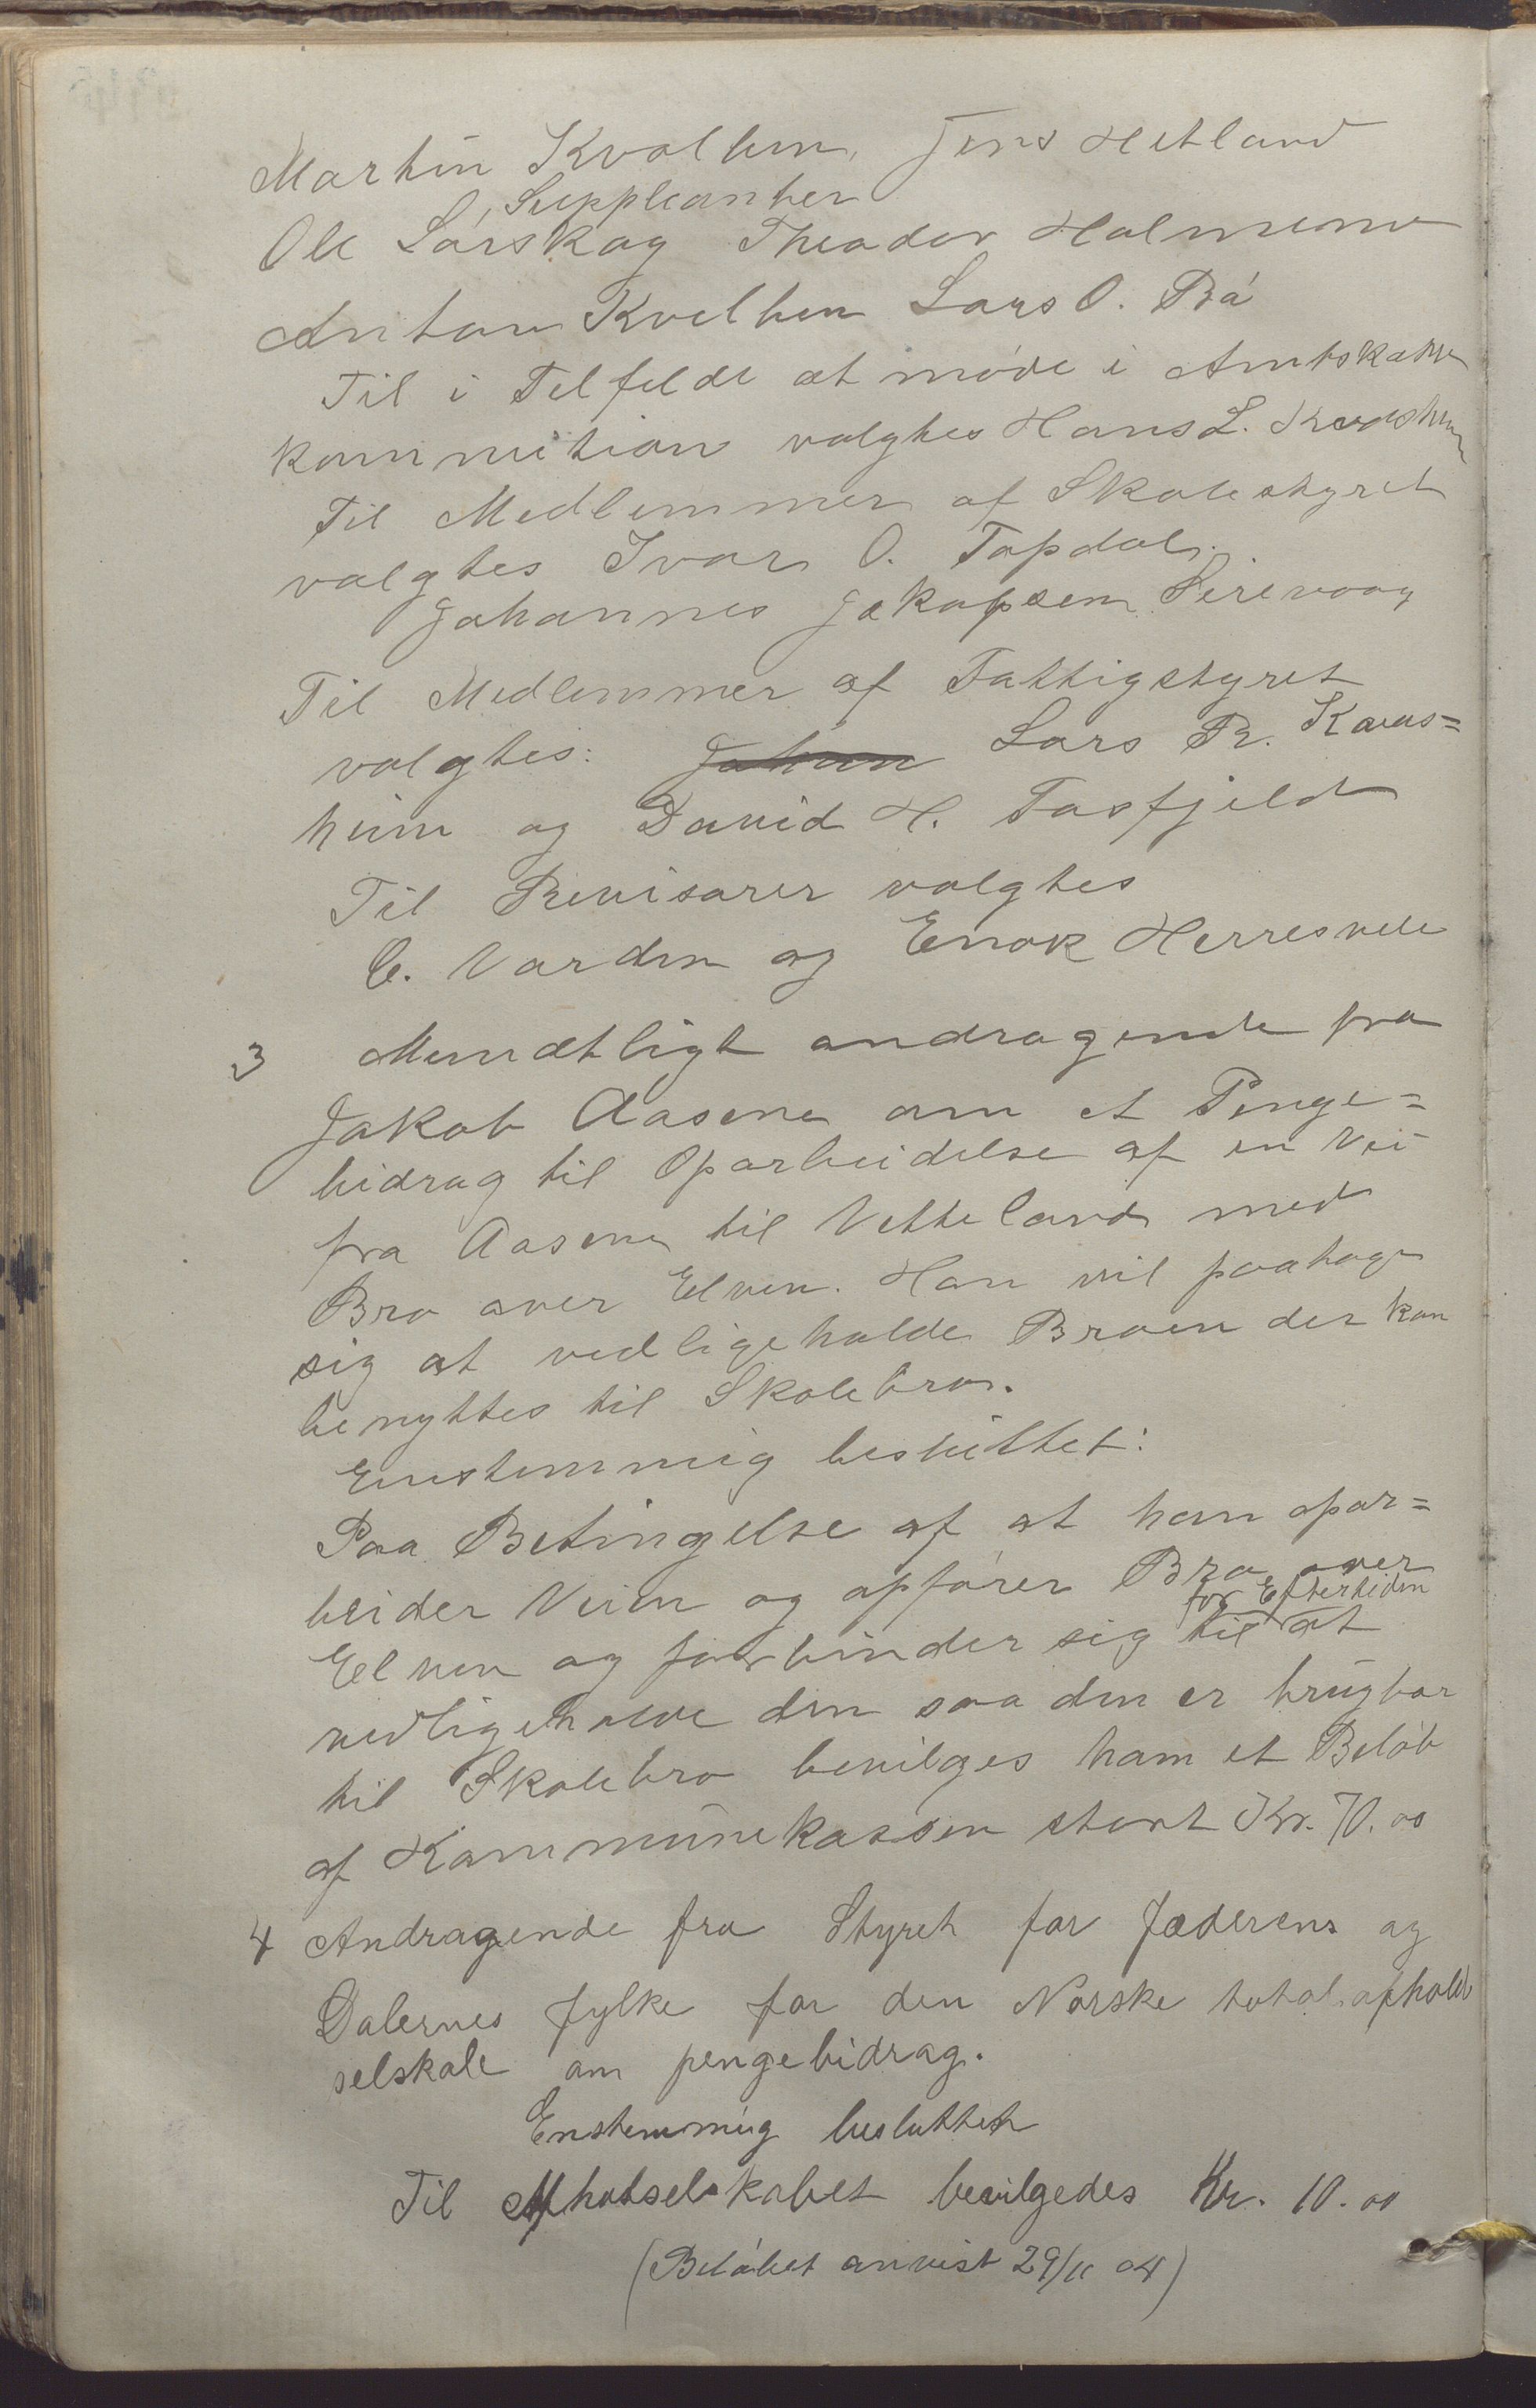 Martin Kvalben, Jens Hetland
Suppleanter
Ole Sørskog Theodor Holmene
Anton Kvalben Lars O. Bø
Til i Telfelde at møde i Amtskatte
kommition valgtes Hans L.
Til Medlemmer af Skolestyret
valgtes Ivar O. Topdal.
Johannes Jakopsen Sirevaag
Til Medlemmer af Fattigstyret
valgtes: Johan Lars R. Karas=
heim og David H. Tosfjeld
Til Revisorer valgtes
C. Varden og Enok Herresvele
3 Mundtligt andragende fra
Jakob Aasene om et Penge=
bidrag til Oparbeidelse af en Vei
fra Aasene til Vetteland med
Bro over Elven. Han vil paatage
sig at vedligeholde Broen der kan
benyttes til Skolebro.
Eenstemmig besluttet:
Paa Betingelse af at han opar=
beider Veien og opfører Bro over
for Eftertiden
Elven og forbinder sig til at
vedligeholde den saa den er brugbar
til Skolebro bevilges ham et Beløb
af Kommunekassen stort Kr. 70.00
4 Andragende fra Styret for Jæderens og
Dalernes fylke for den Norske total afhold
selskab om pengebidrag.
Enstemmig besluttet
Til Afholselskabet bevilgedes Kr. 10.00
(Beløbet anvist 29/11 04)